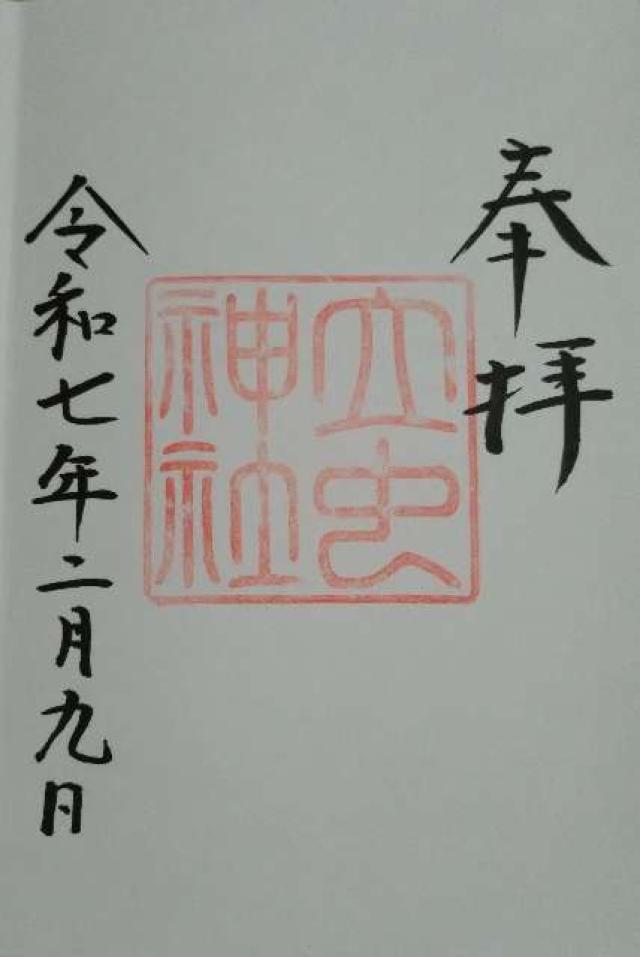 奉拝
立虫
神社
令和七年二月九日